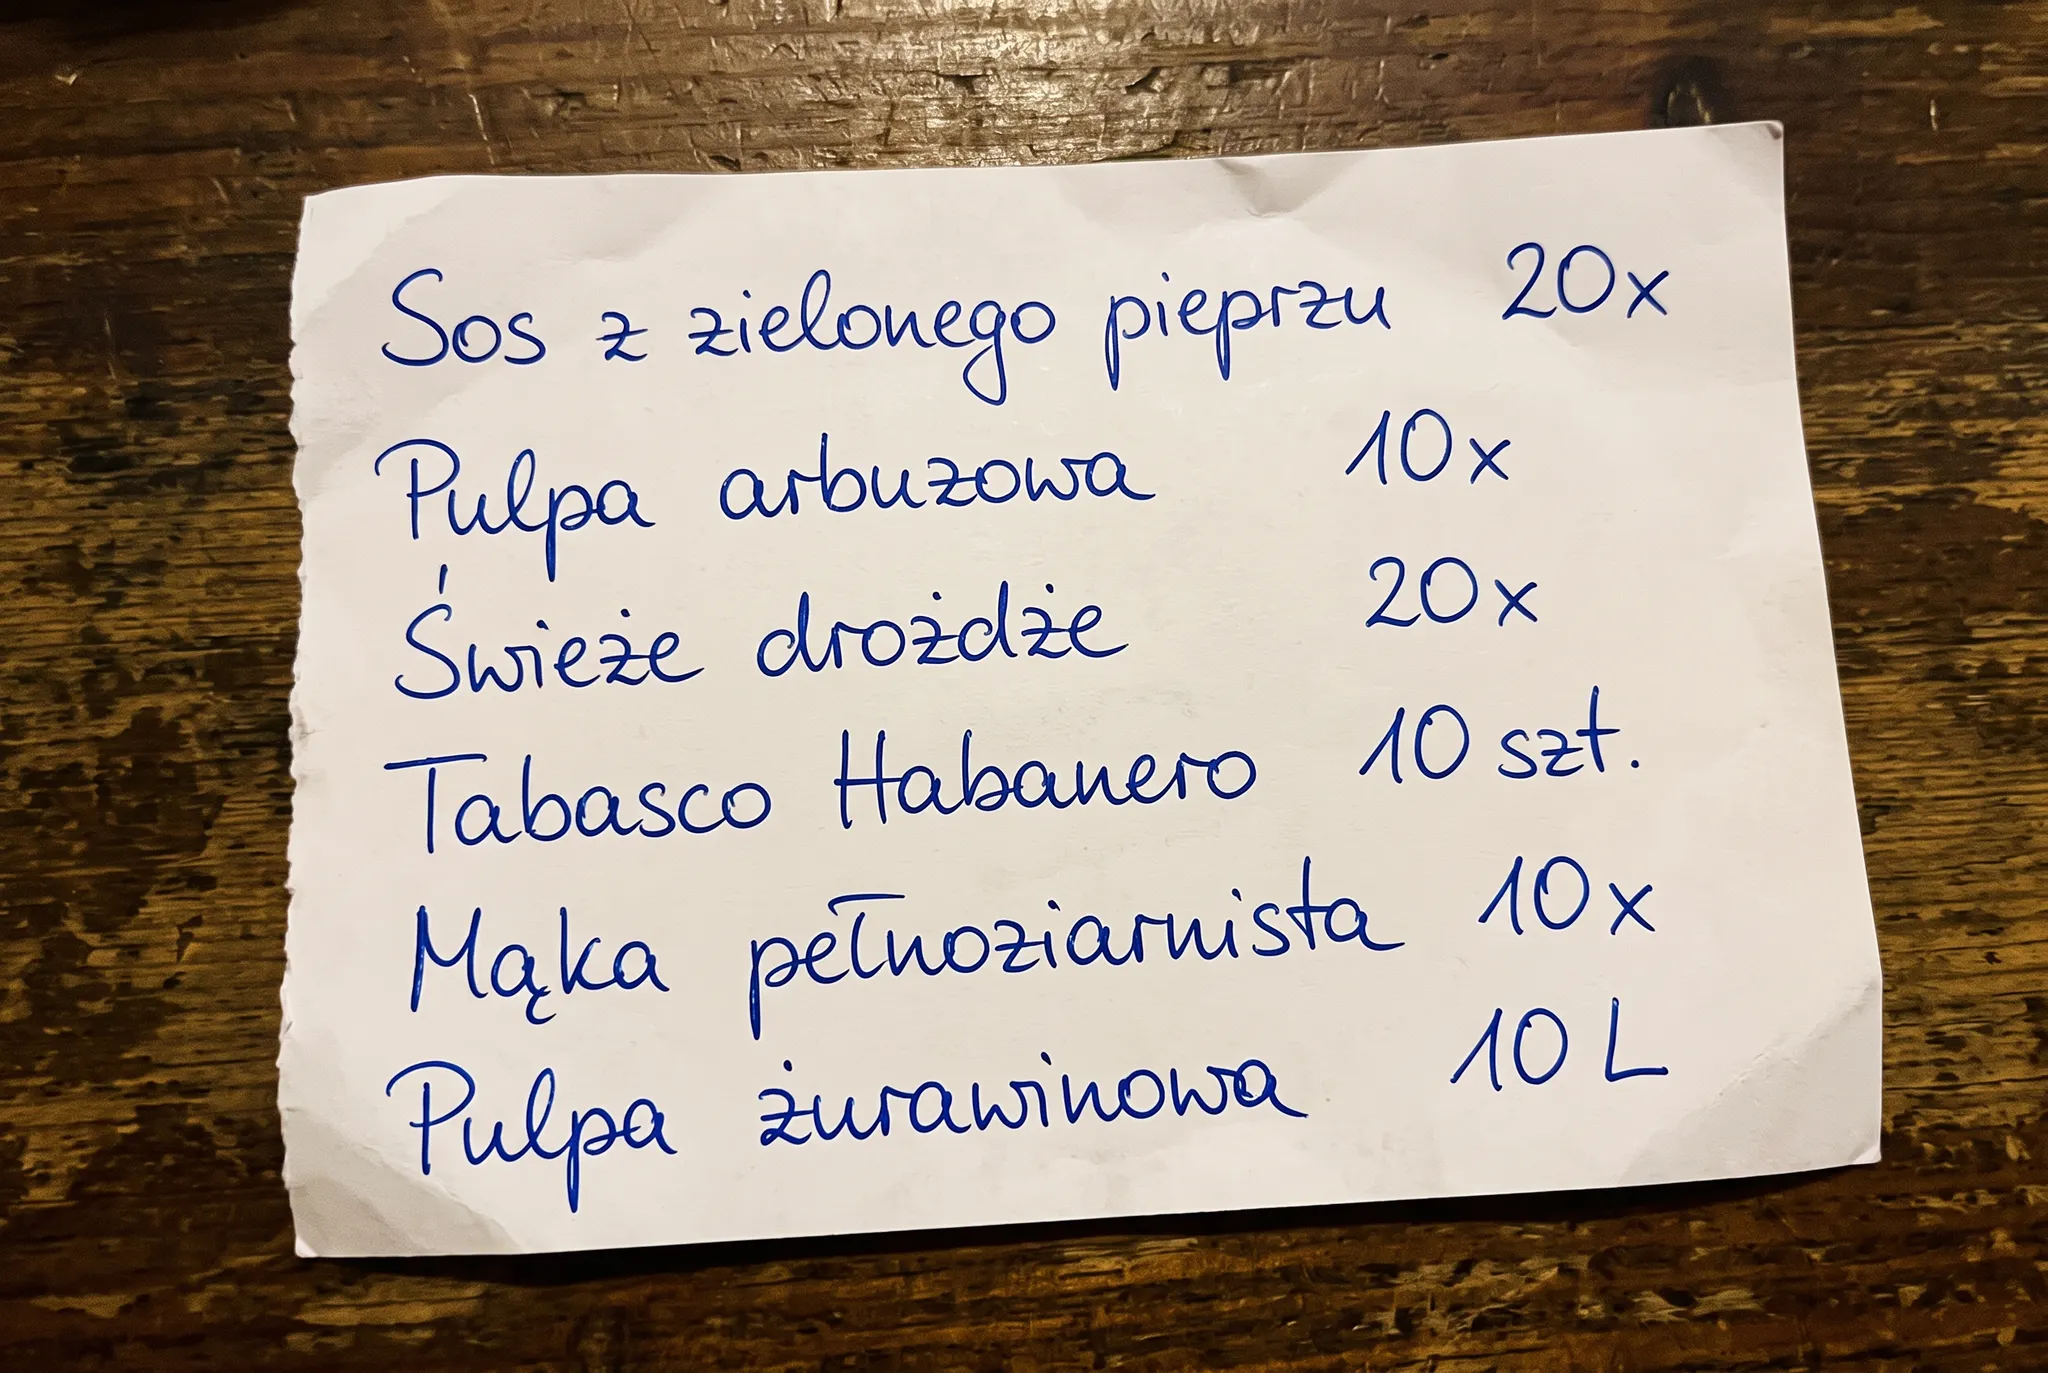 Sos z zielonego pieprzu 20x
Pulpa arbuzowa 10x
Świeże drożdże 20x
Tabasco Habanero 10 szt.
Mąka pełnoziarnista 10x
Pulpa żurawinowa 10 L